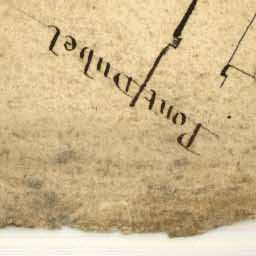 Pont Dubel